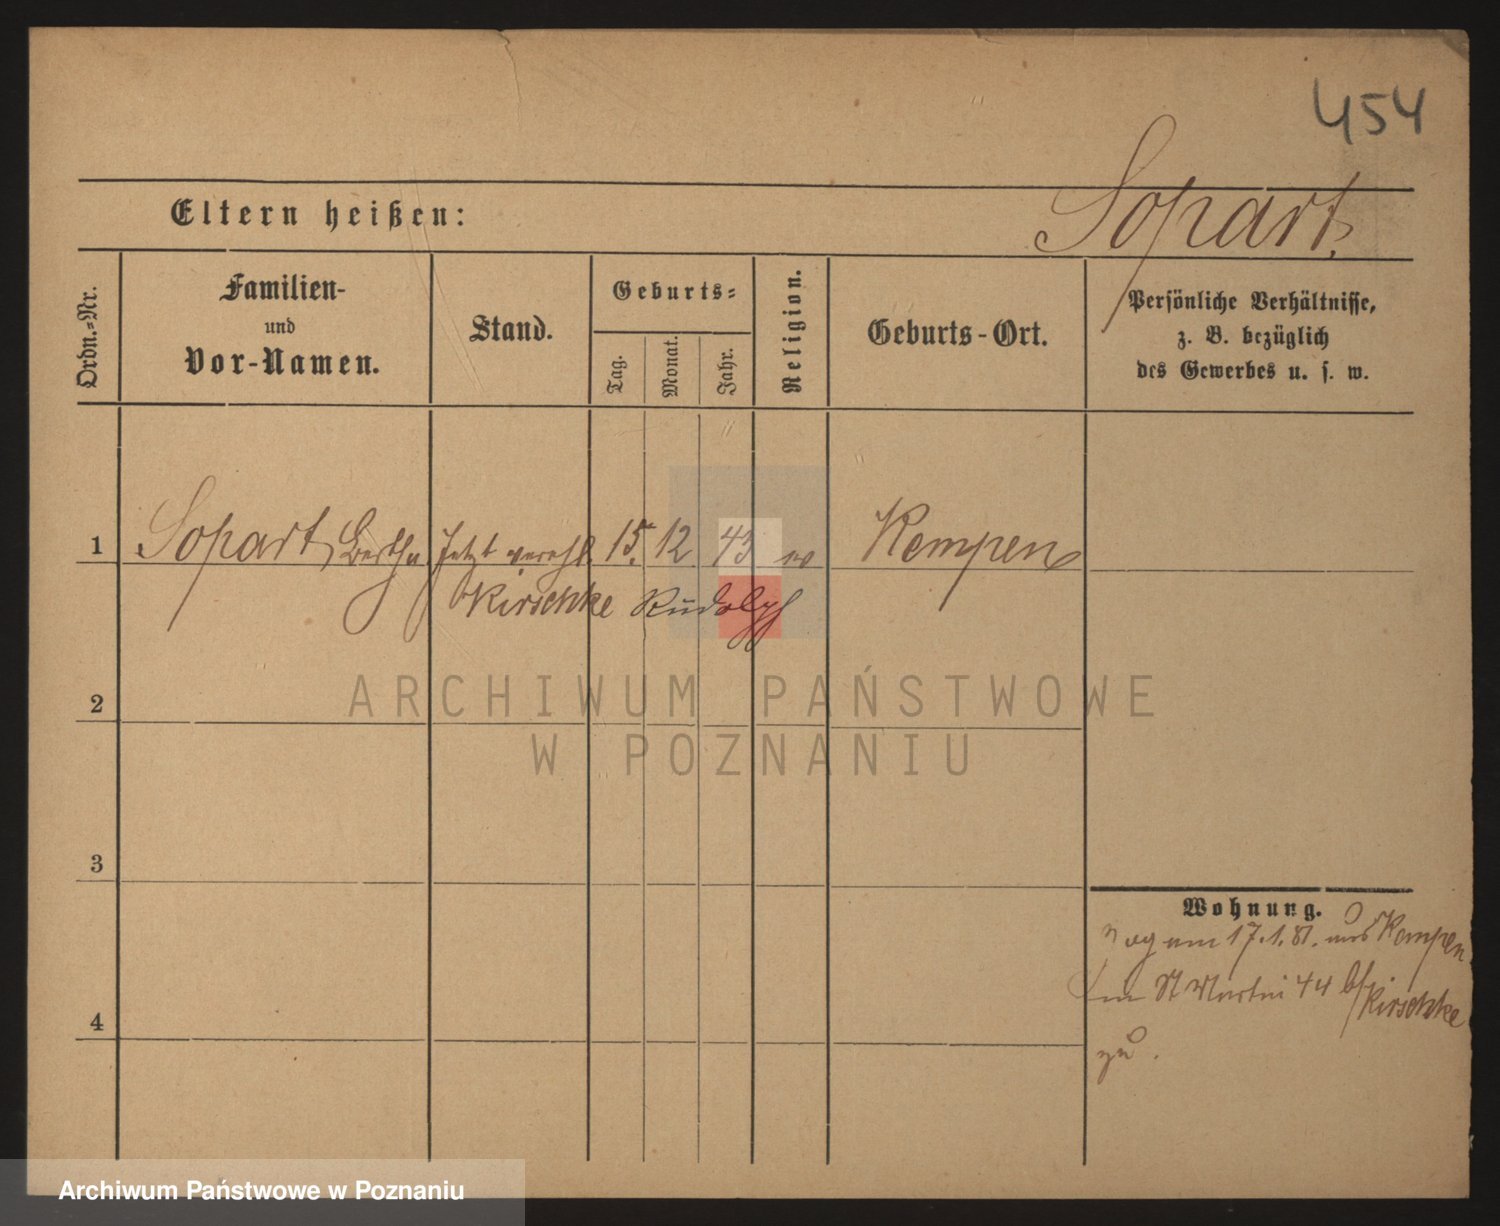 454
Sopart.
Eltern heißen:
Ordn.-Nr.
Familien-
und
Vor-Namen.
Stand.
Geburts-
Tag.
Monat.
Jahr.
Religion.
Geburts-Ort.
Persönliche Verhältnisse,
z. B. bezüglich
des Gewerbes u. s. w.
1 Sopart, Bertha Jetzt verehl. 15. 12 43 Kempen
Kirschke Rudolph
2
ARCHIWUM PAŃSTWOWE
W POZNANIU
3
Wohnung.
zog am 17.1.81. aus Kempen
St Martin 44 b/ Kirschke
zu.
4
Archiwum Państwowe w Poznaniu